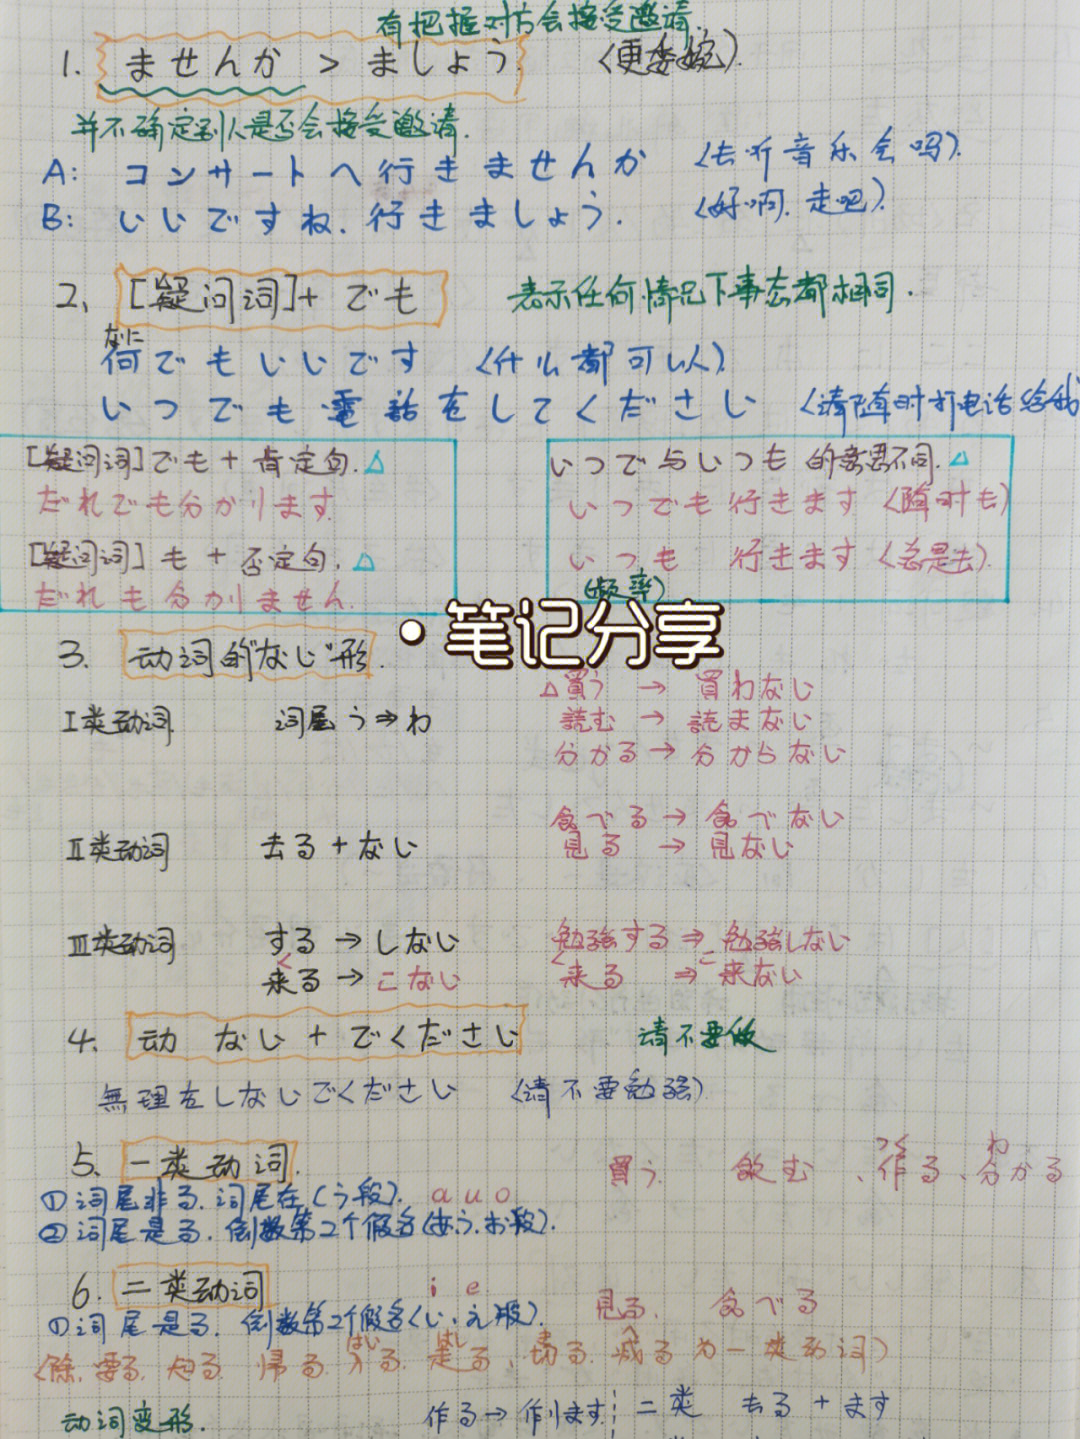 有把握对方会接受邀请.
1. ませんか > ましょう. (更委婉).
并不确定别人是否会接受邀请.
A: コンサートへ行きませんか (去听音乐会吗).
B: いいですね、行きましょう. (好啊. 走吧).
2、[疑问词]+ でも 表示任何情况下事态都相同.
なに
何でもいいです (什么都可以)
いつでも電話をしてください (请随时打电话给我
[疑问词]でも + 肯定句. △
だれでも分かります.
[疑问词] も + 否定句. △
だれも分かりません.
いつで与いつも 的意思不同. △
いつでも 行きます (随时去)
いつも 行きます (总是去).
(频率)
• 笔记分享
3. 动词的"ない"形.
I类动词. 词尾う⇒わ
△買う → 買わない
読む → 読まない
分かる → 分からない
食べる → 食べない
II类动词 去る+ない 見る → 見ない
III类动词 する → しない 勉強する ⇒ 勉強しない
く く こ
来る → こない 来る ⇒ 来ない
4、动 ない + でください 请不要做
無理をしないでください (请不要勉强)
つく わ
5、一类动词. 買う. 飲む 、作る、分かる
①词尾非る. 词尾在(う段). a u o
②词尾是る. 倒数第2个假名(あ.う.お段).
6. 二类动词 i e
①词尾是る. 倒数第2个假名(い.え段). 見る. 食べる
はい はし へ
(除.要る. 知る. 帰る. 入る. 走る、切る. 減る为一类动词)
动词变形. 作る→作ります. 二类 去る + ます